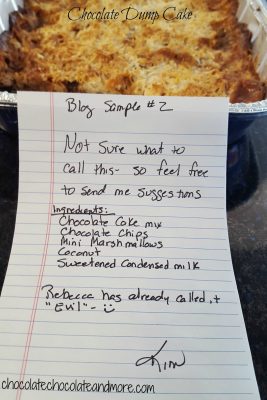 Chocolate Dump Cake
Blog Sample #2
Not Sure what to
call this- so feel free
to send me suggestions
Ingredients:
Chocolate Cake mix
Chocolate Chips
Mini Marshmallows
Coconut
Sweetened Condensed milk
Rebecca has already called it
"Evil" - 
Kim
chocolatechocolateandmore.com